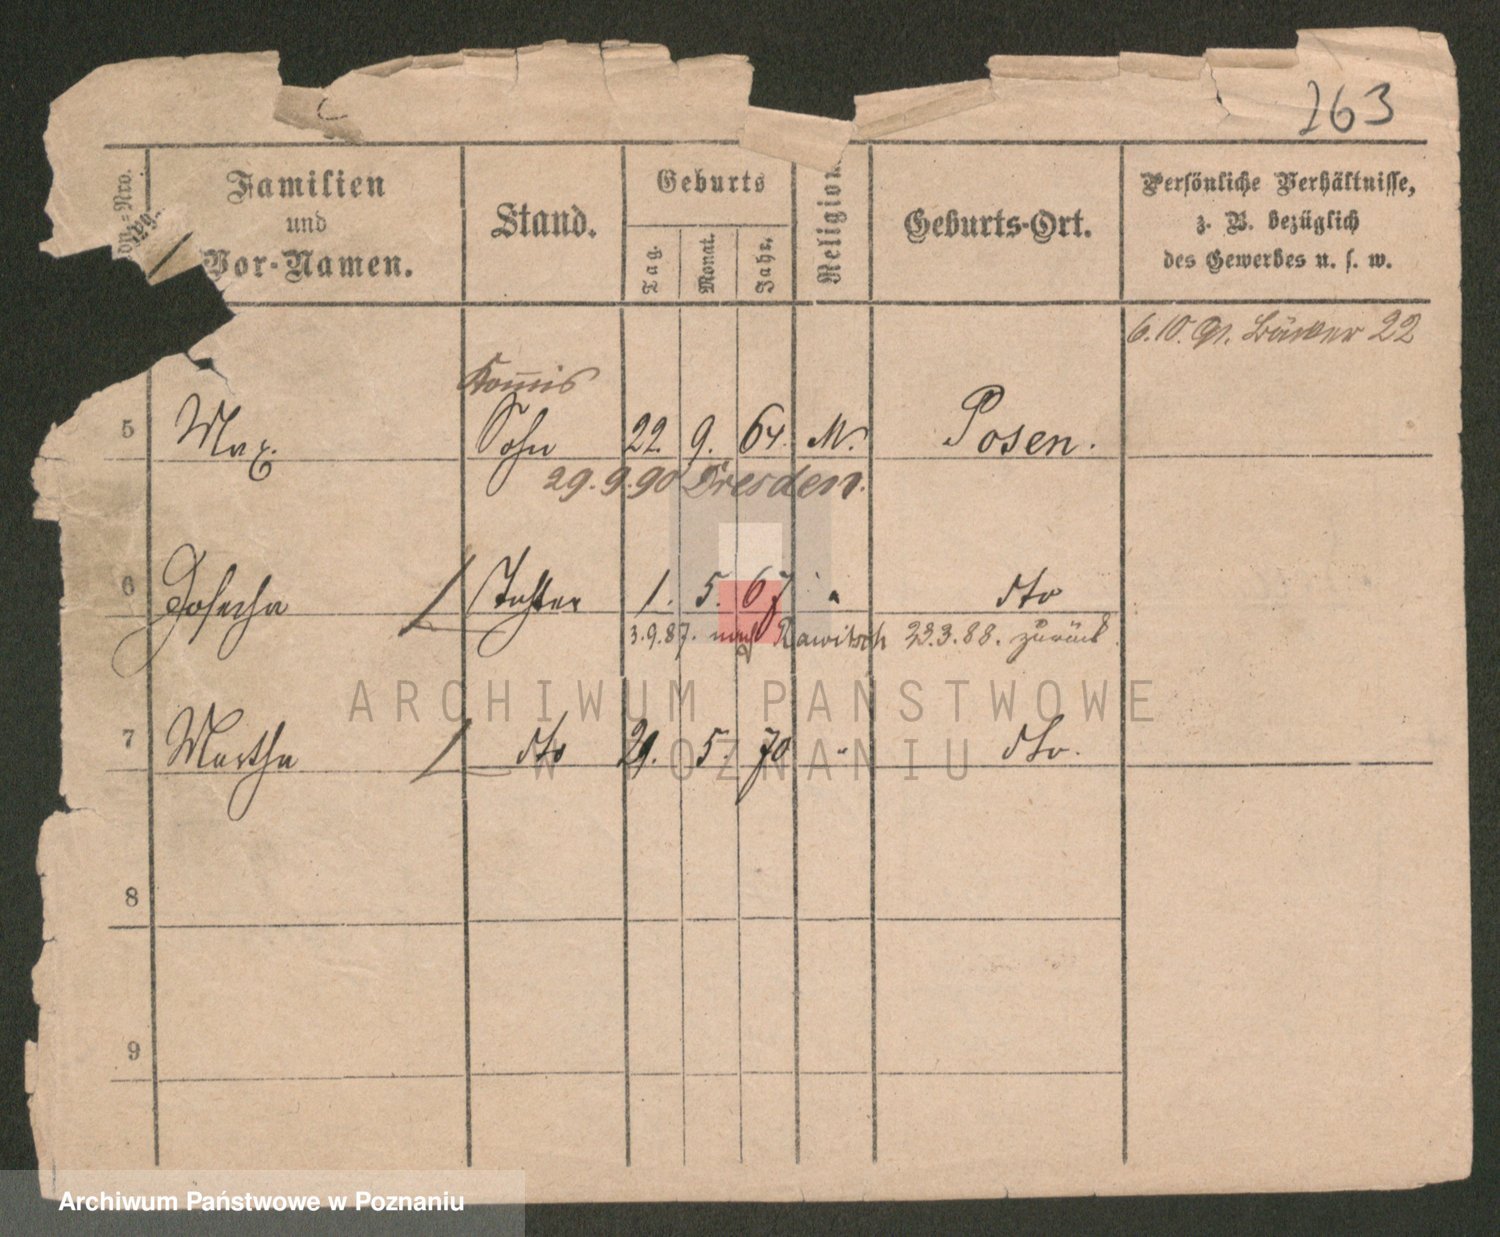 263
Familien
und
Vor-Namen.
Stand.
Geburts
Tag.
Monat.
Jahr.
Religion
Geburts-Ort.
Persönliche Verhältnisse,
z. B. bezüglich
des Gewerbes u. s. w.
6.10. Gr. 22
Kom̅is
5 Max. Sohn 22. 9. 64. M. Posen.
29.9.90 Dresden.
6 Tochter 1. 5. 67 " dto
3.9.87. nach Rawitsch 23.3.88. zurück
7 Martha dto 29. 5. 70 " dto.
8
9
ARCHIWUM PAŃSTWOWE
W POZNANIU
Archiwum Państwowe w Poznaniu